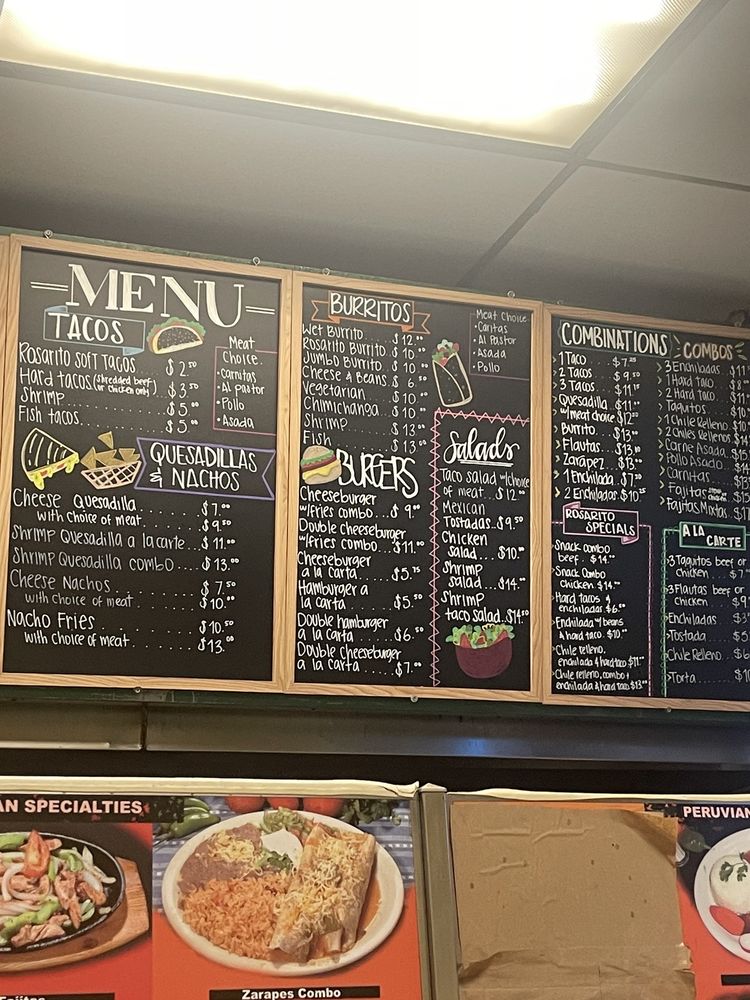 MENU
TACOS
Rosarito soft tacos $2.50
Hard tacos (shredded beef or chicken only) $3.50
Shrimp $5.00
Fish tacos $5.00
Meat
Choice
•Carnitas
•Al pastor
•Pollo
•Asada
QUESADILLAS
& NACHOS
Cheese Quesadilla $7.00
with choice of meat $9.50
Shrimp Quesadilla a la carte $11.00
Shrimp Quesadilla combo $13.00
Cheese Nachos $7.50
with choice of meat $10.00
Nacho Fries $10.50
with choice of meat $13.00
BURRITOS
Wet Burrito $12.00
Rosarito Burrito $10
Jumbo Burrito $10
Cheese & Beans $6
Vegetarian $10
Chimichanga $10
Shrimp $13
Fish $13
Meat Choice
•Caritas
•Al Pastor
•Asada
•Pollo
BURGERS
Cheeseburger
w/fries combo $9.00
Double cheeseburger
w/fries combo $11.00
Cheeseburger
a la carta $5.75
Hamburger a
la carta $5.50
Double hamburger
a la carta $6.50
Double Cheeseburger
a la carta $7.00
Salads
Taco salad w/choice
of meat $12.00
Mexican
Tostadas $9.50
Chicken
salad $10.00
shrimp
salad $14.00
shrimp
taco salad $14.50
COMBINATIONS
1 Taco $7.25
2 Tacos $9.50
3 Tacos $11
Quesadilla $11
w/meat choice $12
Burrito $13
Flautas $13
Zarapez $13
1 Enchilada $7
2 Enchiladas $10.25
COMBOS
3 Enchiladas $11
1 Hard taco $8
2 Hard Taco $11
Taquitos $10
1 Chile Relleno $10
2 Chiles Rellenos $14
Carne Asada $15
Pollo Asado $14
Carnitas $13
Fajitas
Fajitas Mixtas $17
ROSARITO
SPECIALS
Snack combo
beef $14.00
Snack Combo
chicken $14.00
Hard tacos &
enchiladas $6.00
Enchilada w/ beans
& hard taco $10.00
Chile relleno,
enchilada & hard taco $11
Chile relleno, combo &
enchilada & hard taco $13
A LA
CARTE
3 Taquitos beef or
chicken $7
3 Flautas beef or
chicken $9
Enchiladas $3
Tostada $5
Chile Relleno $6
Torta $10
AN SPECIALTIES
Fajitas
Zarapes Combo
PERUVIAN